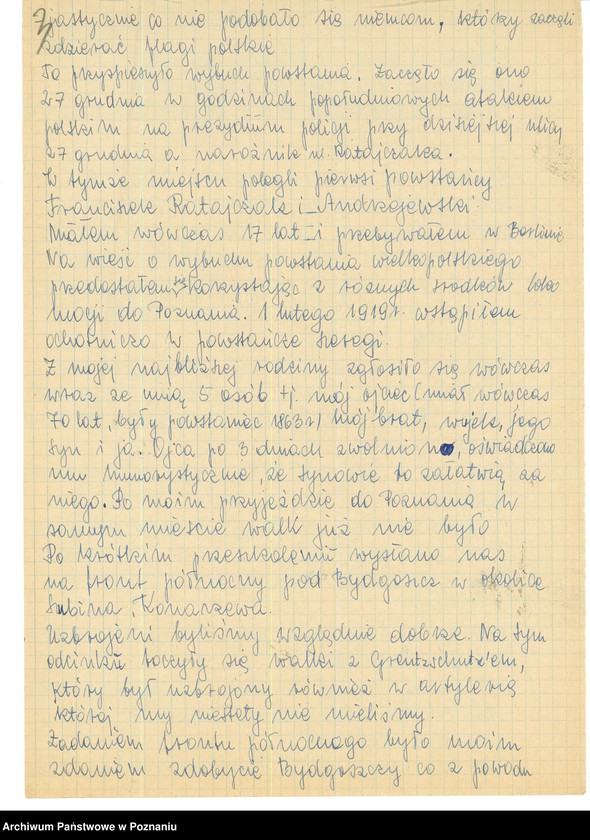 3/
zjastycznie co nie podobało się niemcom, którzy zaczęli
zdzierać flagi polskie
To przyspieszyło wybuch powstania. Zaczęło się ono
27 grudnia w godzinach popołudniowych atakiem
polskim na prezydium policji przy dzisiejszej ulicy
27 grudnia a narożnik ul. Ratajczaka.
W tymże miejscu polegli pierwsi powstańcy
Franciszek Ratajczak i Andrzejewski.
Miałem wówczas 17 lat i przebywałem w Berlinie
Na wieść o wybuchu powstania wielkopolskiego
przedostałem się korzystając z różnych środków loko
mocji do Poznania. 1 lutego 1919r. wstąpiłem
ochotniczo w powstańcze szeregi.
Z mojej najbliższej rodziny zgłosiło się wówczas
wraz ze mną 5 osób tj. mój ojciec (miał wówczas
70 lat, były powstaniec 1863r) mój brat, wujek, jego
syn i ja. Ojca po 3 dniach zwolniono, oświadczono
mu humorystycznie, że synowie to załatwią za
niego. Po moim przyjeździe do Poznania w
samym mieście walk już nie było
Po krótkim przeszkoleniu wysłano nas
na front północny pod Bydgoszcz w okolice
Łubina, Konarzewa.
Uzbrojeni byliśmy względnie dobrze. Na tym
odcinku toczyły się walki z Grentzschutz'em,
który był uzbrojony również w artylerię
której my niestety nie mieliśmy.
Zadaniem frontu północnego było moim
zdaniem zdobycie Bydgoszczy co z powodu
Archiwum Państwowe w Poznaniu